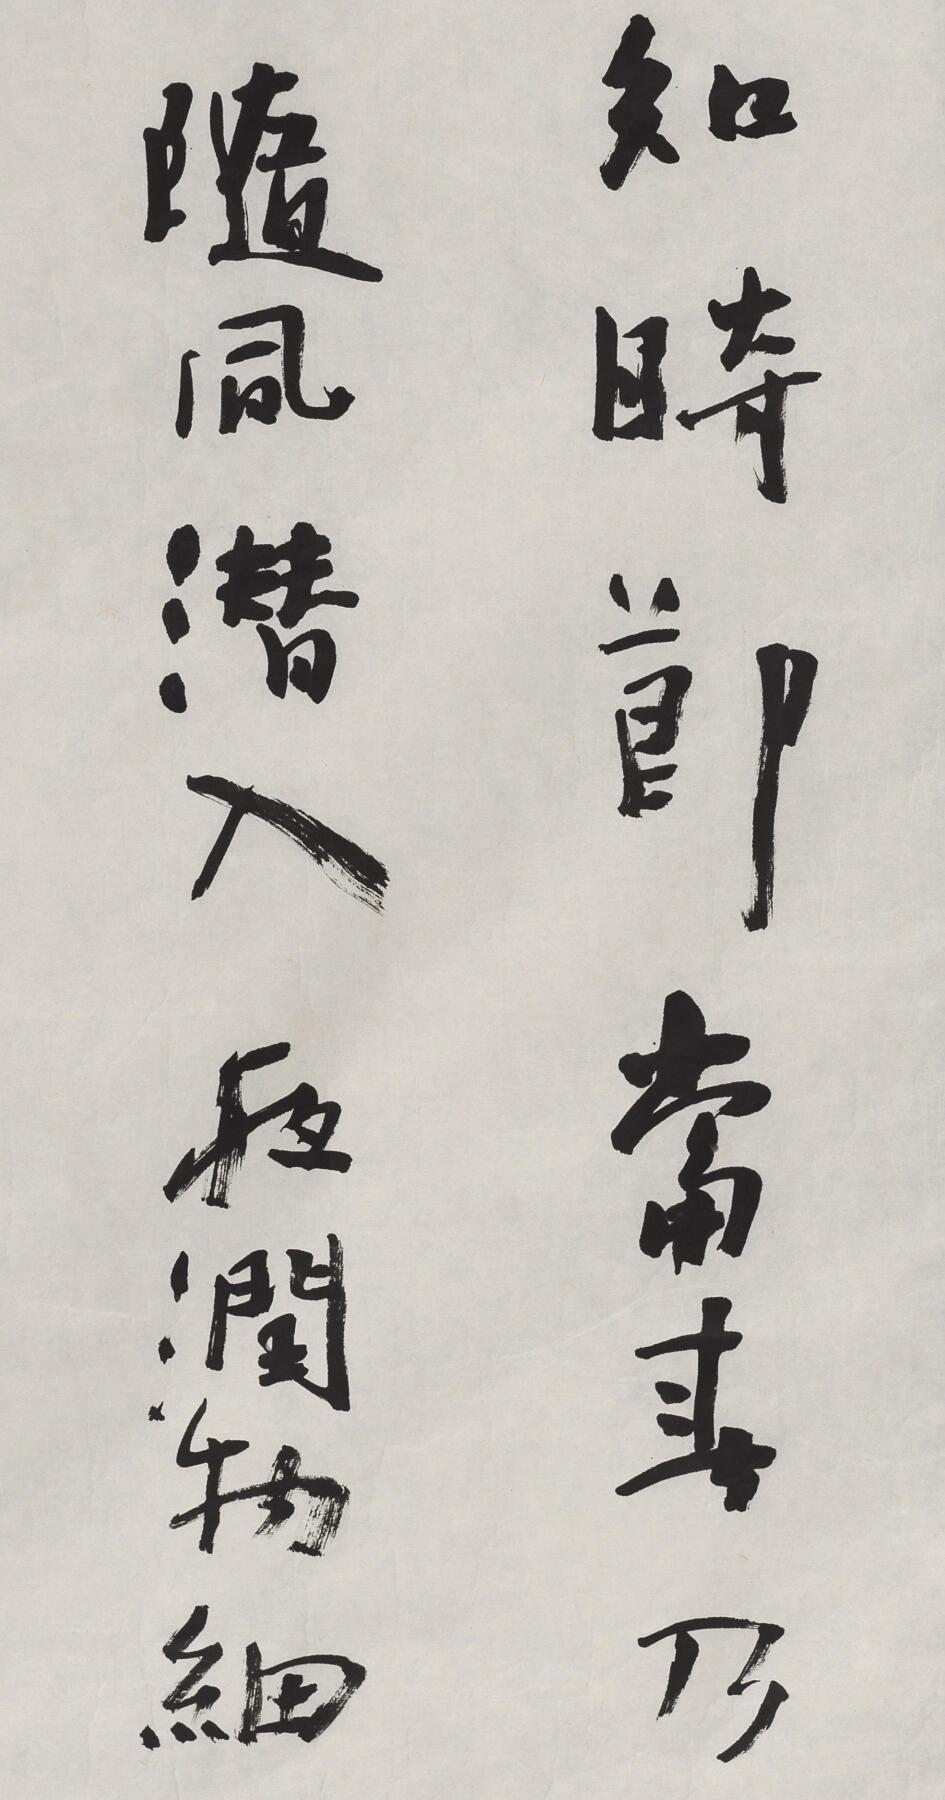 知時節當春乃
隨風潛入夜潤物細